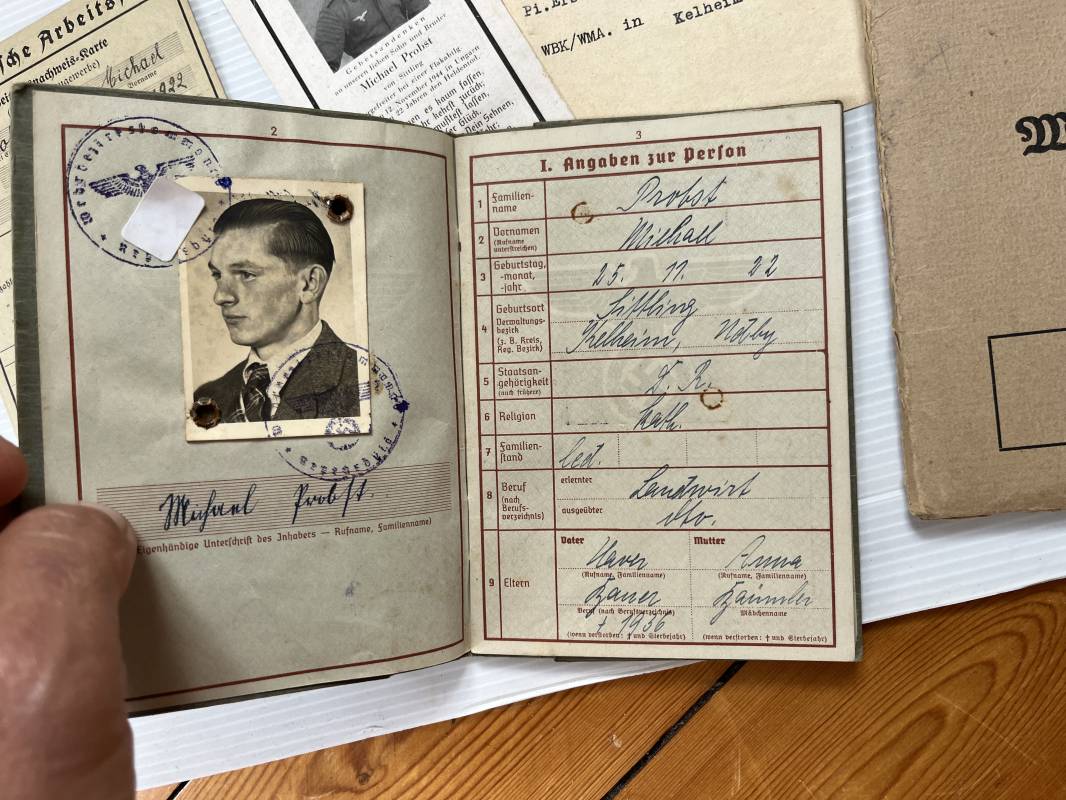 sche Arbeits
nachweis-Karte
Michael
Vorname
1922
Gebetsandenken
an unseren lieben Sohn und Bruder
Michael Probst
von Sittling
Gefreiter bei einer Flakabtlg
12. November 1944 in Ungarn
22 Jahren den Heldentod.
es kaum fassen,
kehrst zurück;
mußtest lassen,
Glück.
Dein Sehnen,
WBK/WMA. in Kelheim
2
Michael Probst.
Eigenhändige Unterschrift des Inhabers — Rufname, Familienname)
3
I. Angaben zur Person
1 Familien-
name
Probst
2 Vornamen
(Rufname
unterstreichen)
Michael
3 Geburtstag,
-monat,
-jahr
25. 11. 22
4 Geburtsort
Verwaltungs-
bezirk
(z. B. Kreis,
Reg. Bezirk)
Sittling
Kelheim, Ndby
5 Staatsan-
gehörigkeit
(auch frühere)
D. R.
6 Religion
kath.
7 Familien-
stand
led.
8 Beruf
(nach
Berufs-
verzeichnis)
erlernter
Landwirt
ausgeübter
dto.
9 Eltern
Vater
Xaver
(Rufname, Familienname)
Bauer
Beruf (nach Berufsverzeichnis)
† 1936
(wenn verstorben: † und Sterbejahr)
Mutter
Anna
(Rufname, Familienname)
Bäumler
Mädchenname
(wenn verstorben: † und Sterbejahr)